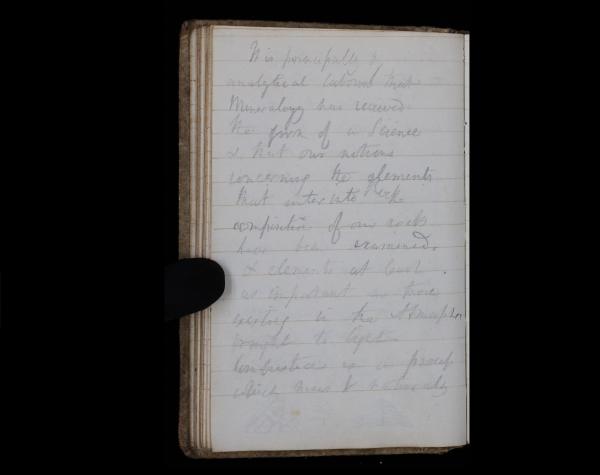 It is principally by
analytical labours that
Mineralogy has received
the form of a Science
& that our notions
concerning the elements
that enter into the
composition of our rocks
have been examined.
& elements at least
as important as those
existing in the Atmosphere
brought to light.
Combustion is a process
which must